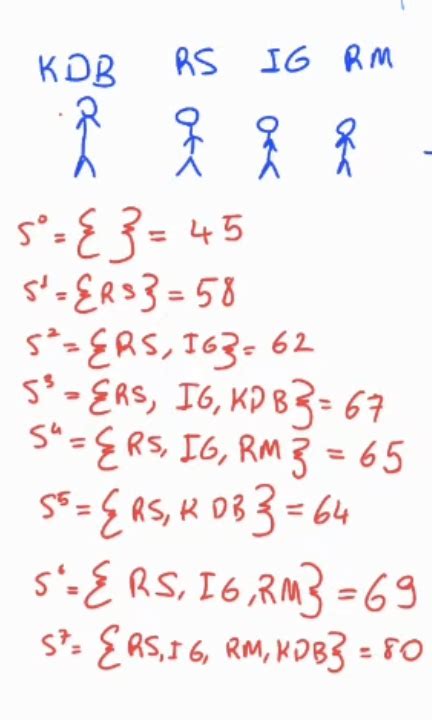 KDB RS IG RM
S⁰ = { } = 45
S¹ = {RS} = 58
S² = {RS, IG} = 62
S³ = {RS, IG, KDB} = 67
S⁴ = {RS, IG, RM} = 65
S⁵ = {RS, KDB} = 64
S⁶ = {RS, IG, RM} = 69
S⁷ = {RS, IG, RM, KDB} = 80